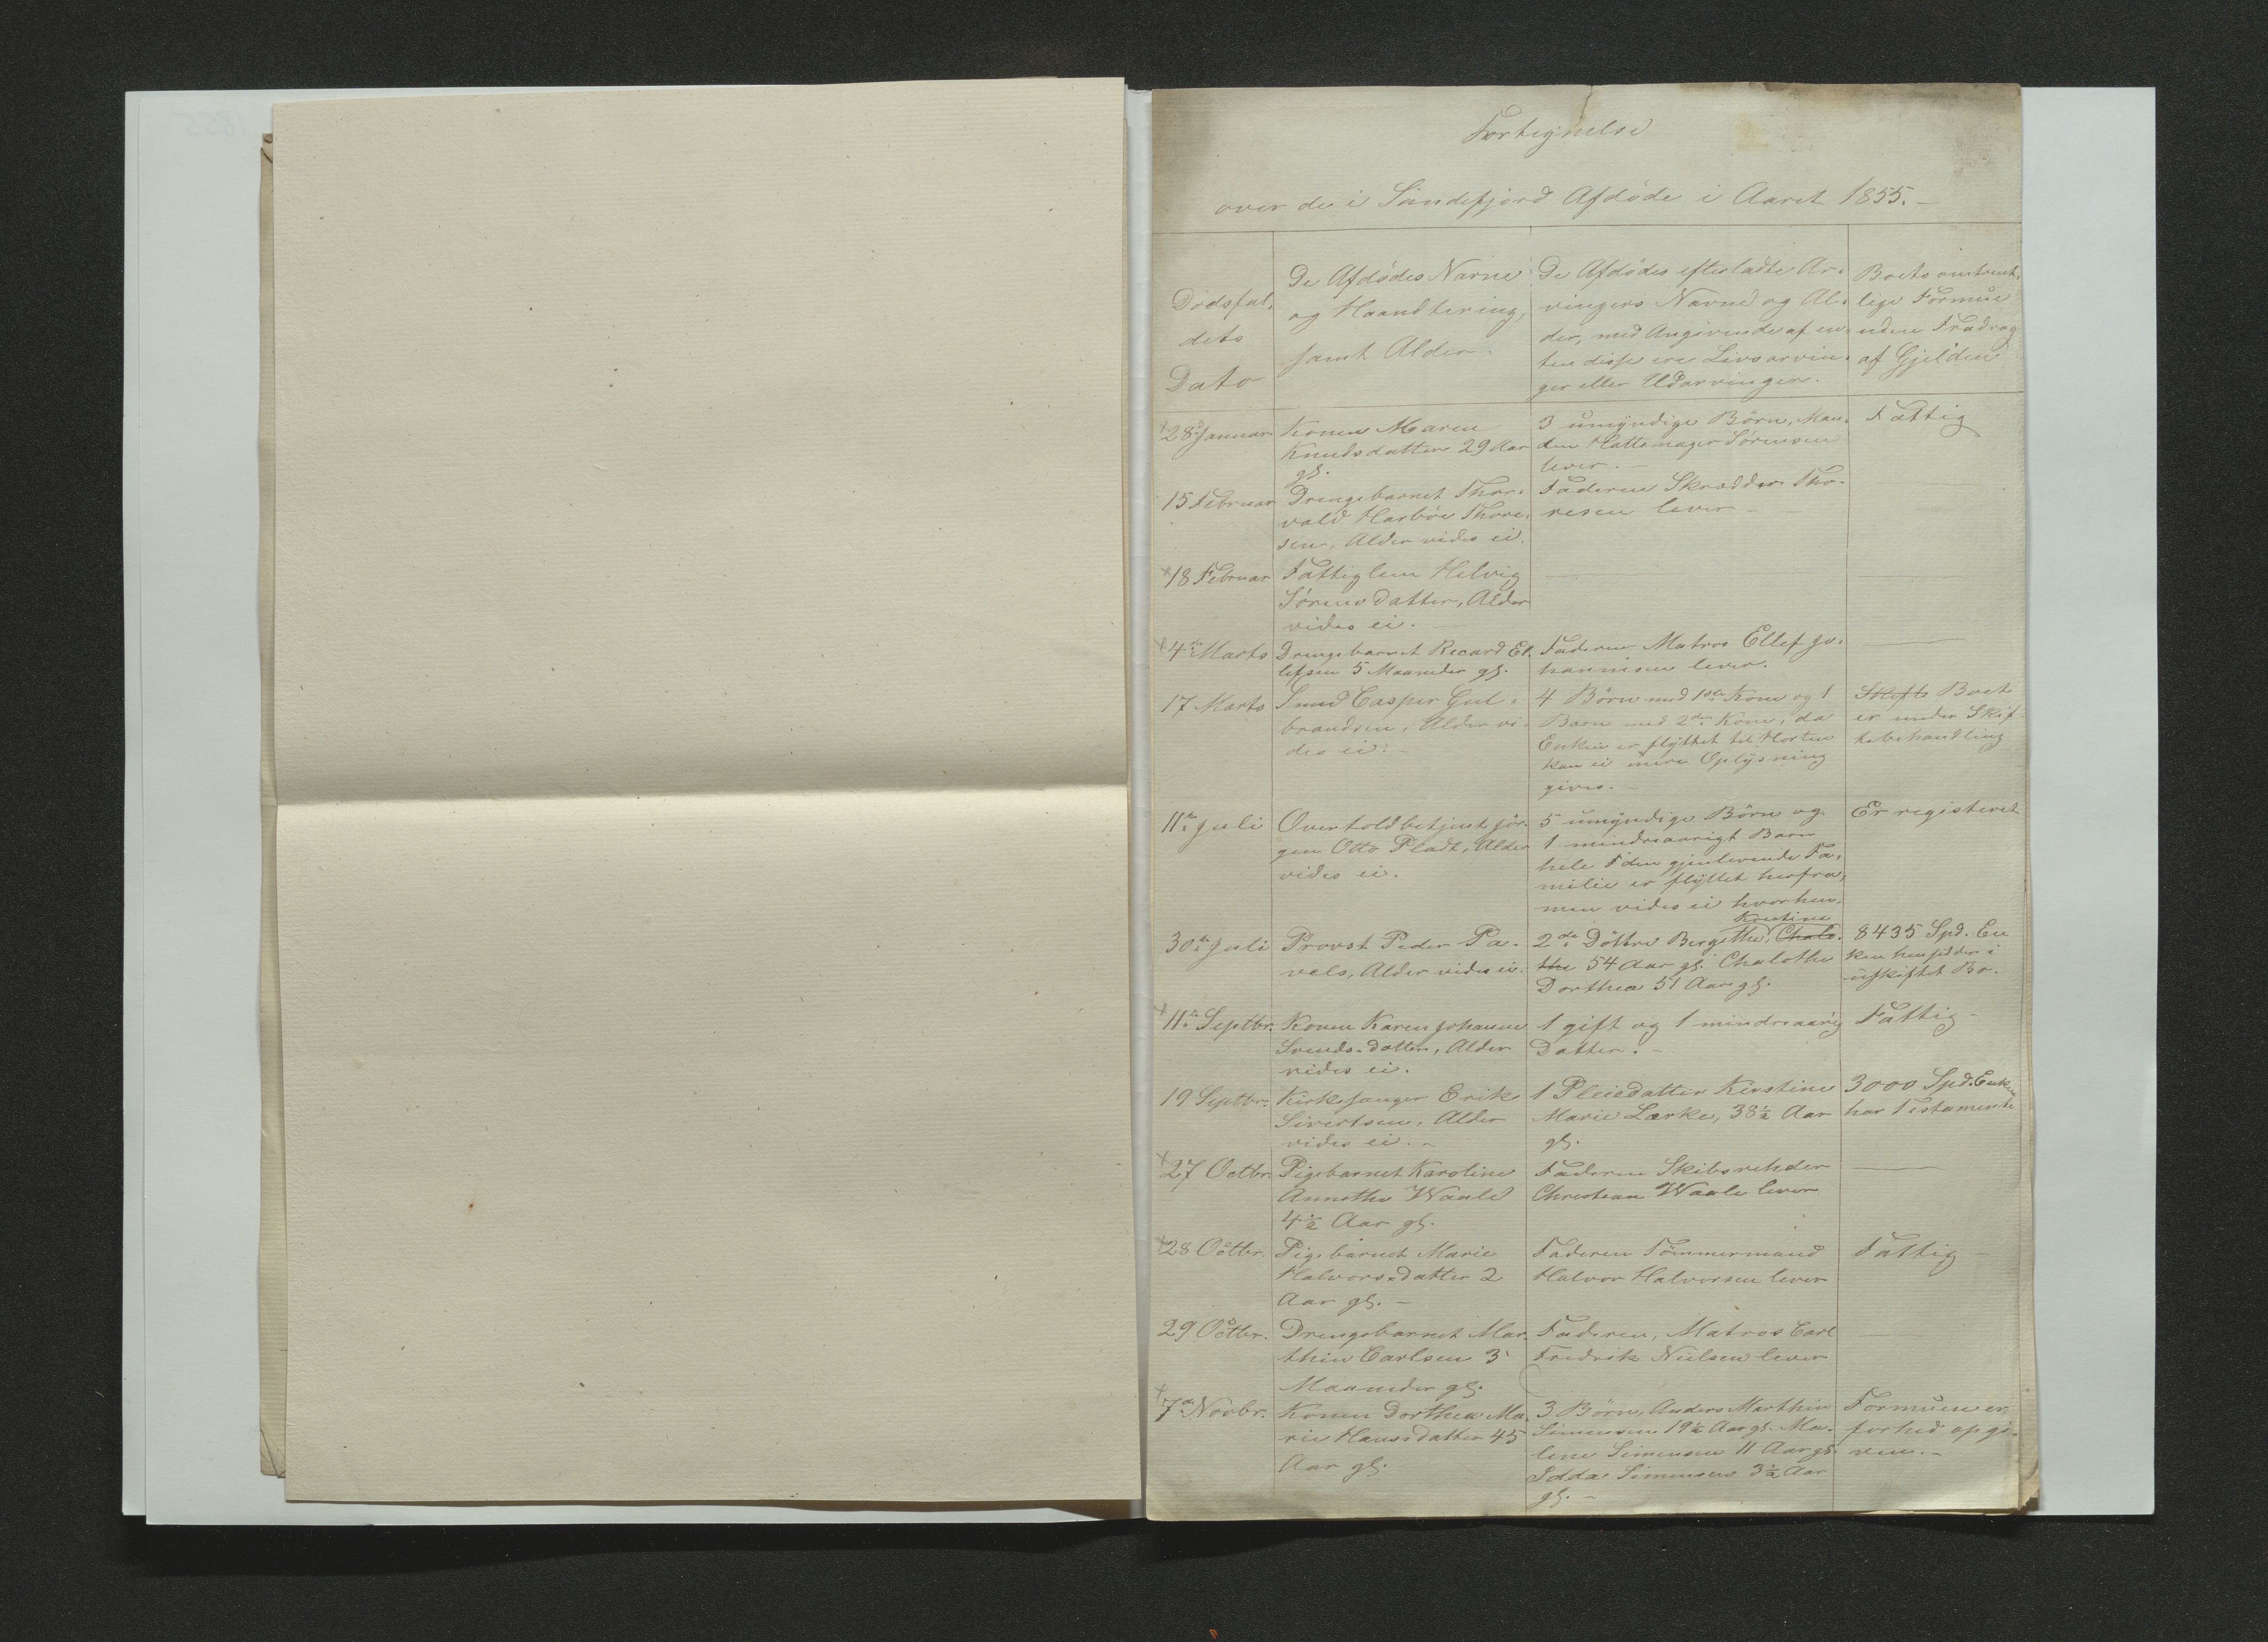 Fortegnelse
over de i Sandefjord Afdøde i Aaret 1855.-
Dødsfal-
dets
Dato
De Afdødes Navne
og Haandtering,
samt Alder.
De Afdødes efterladte Ar-
vingers Navne og Al-
der, med Angivende af en-
ten disse ere Livsarvin-
ger eller Udarvinger.
Boets omtrent-
lige Formue
uden Fradrag
af Gjelden
28 Januar
Konen Maren
Knudsdatter 29 Aar
gl.
3 umyndige Børn, Man-
den Hattemager Sørensen
lever.-
Fattig
15 Februar
Drengebarnet Thor-
vald Harboe Thore-
sen, Alder vides ei.
Faderen Skrædder Tho-
resen lever-
18 Februar
Fattiglem Helvig
Sørensdatter, Alder
vides ei.-
4de Marts
Drengebarnet Recard El-
lefsen 5 Maaneder gl.
Faderen Matros Ellef Jo-
hannisen lever.
17 Marts
Smed Casper Gul-
brandsen, Alder vi-
des ei.-
4 Børn med 1ste Kone og 1
Barn med 2den Kone, da
Enken er flyttet til Horten
kan ei mere Oplysning
gives.-
Skifte Boet
er under Skif-
tebehandling
11te Juli
Overtoldbetjent Jør-
gen Otto Pladt, Alder
vides ei.
5 umyndige Børn og
1 mindreaarigt Barn
hele den gjenlevende Fa-
milie er flyttet herfra,
men vides ei hvorhen.
Er registeret
30te Juli
Provst Peder Pa-
vels, Alder vides ei.
Kirstine
2de Döttre Bergithe, Chalo-
the 54 Aar gl. Chalothe
Dorthea 51 Aar gl.
8435 Spd. En
ken hensidder i
uskiftet Bo.
11te Septbr.
Konen Karen Johanne
Svends-datter, Alder
vides ei.
1 gift og 1 mindreaarig
Datter.-
Fattig-
19 Septbr.
Kirkesanger Erik
Sivertsen, Alder
vides ei.-
1 Pleiedatter Kirstine
Marie Lærke, 38½ Aar
gl.
3000 Spd. Enken
har Testamente
27 Octbr.
Pigebarnet Karoline
Annethe Waale
4½ Aar gl.
Faderen Skibsreheder
Christian Waale lever
28 Octbr.
Pigebarnet Marie
Halvors-datter 2
Aar gl.-
Faderen Tömmermand
Halvor Halvorsen lever
Fattig-
29 Octbr.
Drengebarnet Mar-
thin Carlsen 3
Maaneder gl.
Faderen, Matros Carl
Fredrik Nielsen lever
7de Novbr.
Konen Dorthea Ma-
rie Hansdatter 45
Aar gl.
3 Børn, Anders Marthin
Simensen 19½ Aar gl. Ma-
lene Simensen 11 Aar gl.
Simensen 3½ Aar
gl.-
Formuen er
forhen opgi-
ven.-